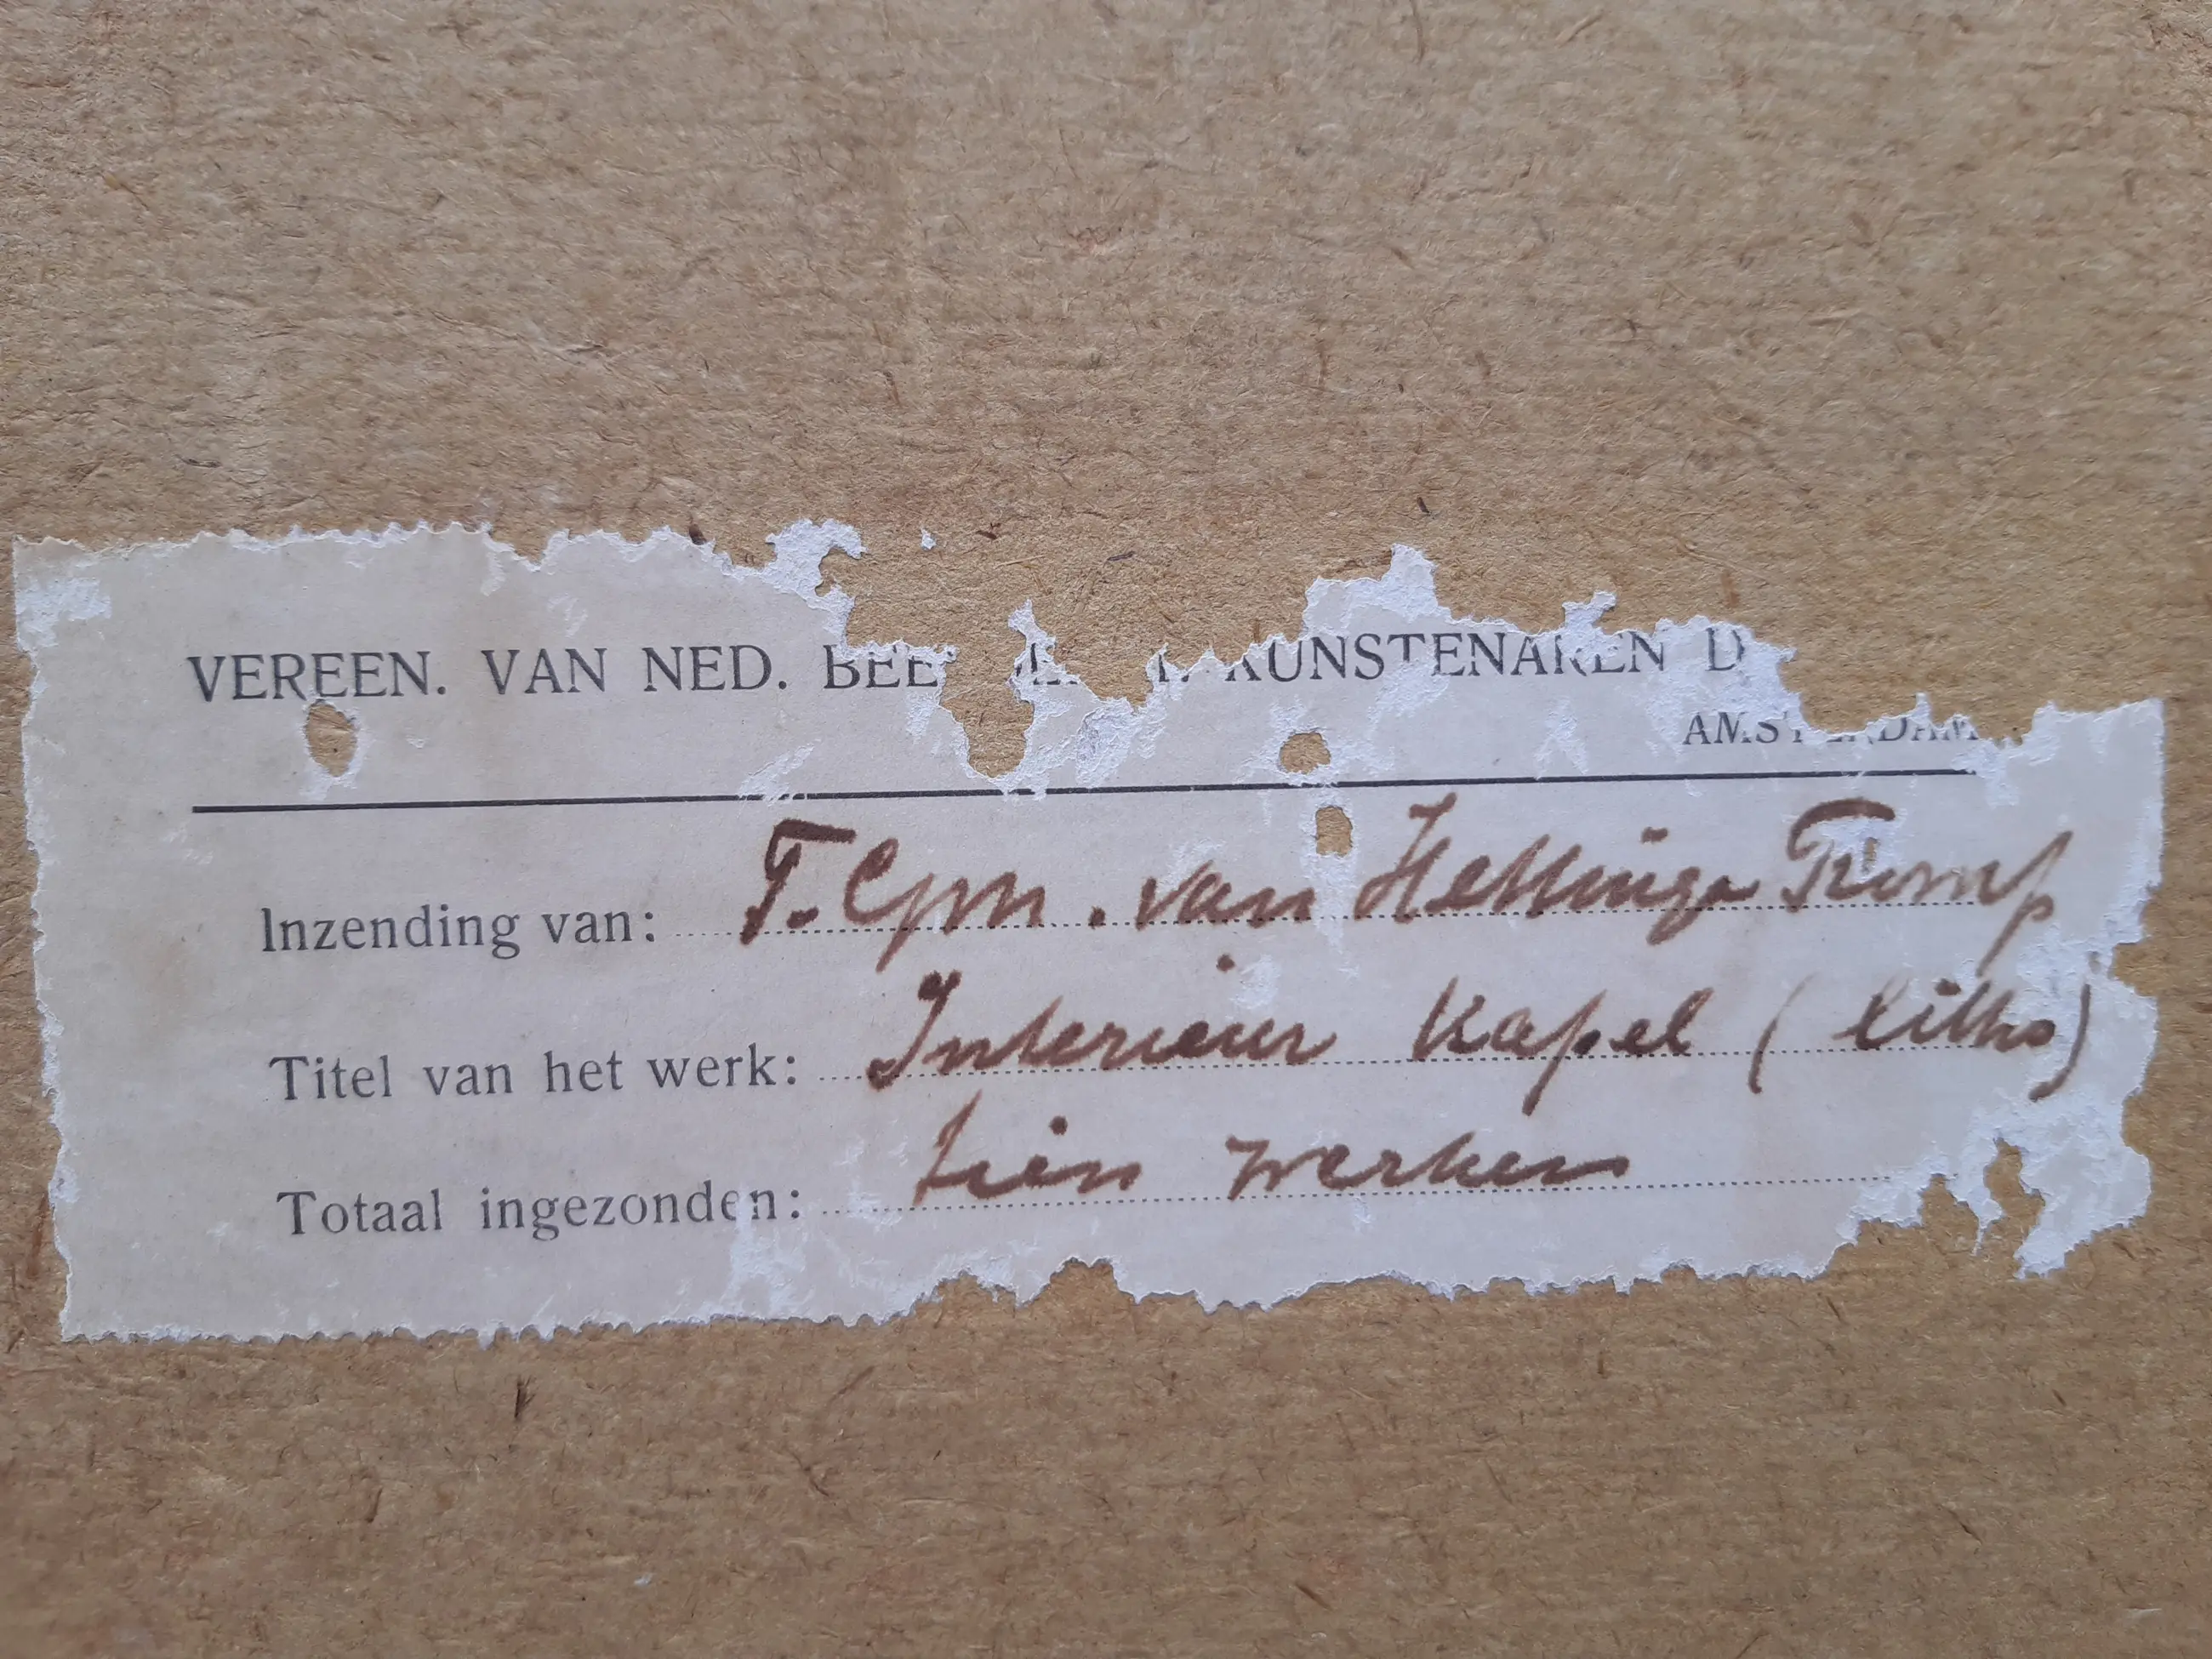 VEREEN. VAN NED. BEE KUNSTENAREN D
AMSTERDAM
Inzending van: T. Gpn. van Hettinga Tromp
Titel van het werk: Interieur Kapel (litho)
Totaal ingezonden: tien werken